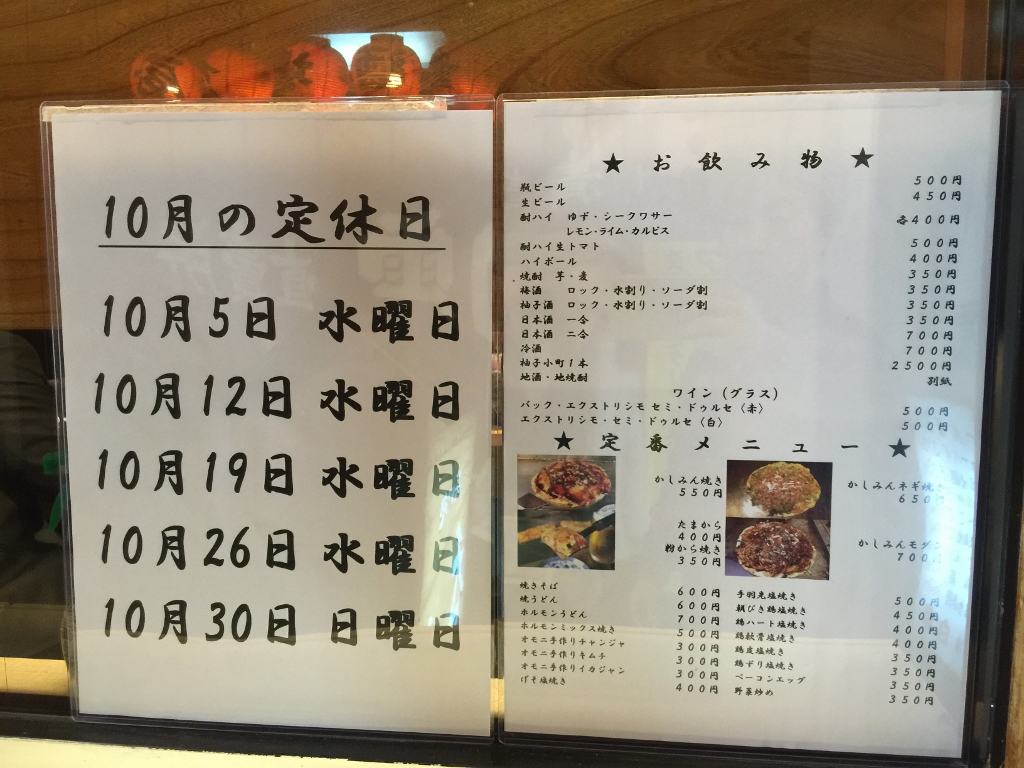 10月の定休日
10月5日 水曜日
10月12日 水曜日
10月19日 水曜日
10月26日 水曜日
10月30日 日曜日
★ お飲み物 ★
瓶ビール 500円
生ビール 450円
酎ハイ ゆず・シークワサー 各400円
レモン・ライム・カルピス
酎ハイ生トマト 500円
ハイボール 400円
焼酎 芋・麦 350円
梅酒 ロック・水割り・ソーダ割 350円
柚子酒 ロック・水割り・ソーダ割 350円
日本酒 一合 350円
日本酒 二合 700円
冷酒 700円
柚子小町1本 2500円
地酒・地焼酎 別紙
ワイン(グラス)
バック・エクストリシモ セミ・ドゥルセ〈赤〉 500円
エクストリシモ・セミ・ドゥルセ〈白〉 500円
★ 定番メニュー ★
かしみん焼き
550円
たまから
400円
粉から焼き
350円
かしみんネギ焼き
650円
かしみんモダン
700円
焼きそば 600円
焼うどん 600円
ホルモンうどん 700円
ホルモンミックス焼き 500円
オモニ手作りチャンジャ 300円
オモニ手作りキムチ 300円
オモニ手作りイカジャン 300円
げそ塩焼き 400円
手羽先塩焼き 500円
朝びき鶏塩焼き 450円
鶏ハート塩焼き 400円
鶏軟骨塩焼き 400円
鶏皮塩焼き 350円
鶏ずり塩焼き 350円
ベーコンエッグ 350円
野菜炒め 350円